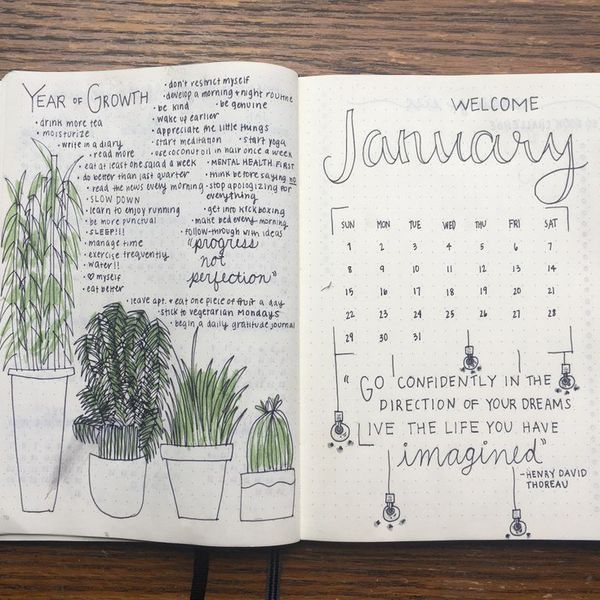 YEAR OF GROWTH
• drink more tea
• moisturize
• write in a diary
• read more
• eat at least one salad a week
• do better than last quarter
• read the news every morning
• SLOW DOWN
• learn to enjoy running
• be more punctual
• SLEEP!!!
• manage time
• exercise frequently
• water!!
• ♡ myself
• eat better
• don't restrict myself
• develop a morning + night routine
• be kind • be genuine
• wake up earlier
• appreciate the little things
• start meditation • start yoga
• use coconut oil in hair once a week
• MENTAL HEALTH FIRST
• think before saying no
• stop apologizing for
everything
• get into kickboxing
• make bed every morning
• follow-through with ideas
"progress
not
perfection"
• leave apt. • eat one piece of fruit a day
• stick to vegetarian Mondays
• begin a daily gratitude journal
WELCOME
January
SUN MON TUE WED THU FRI SAT
1 2 3 4 5 6 7
8 9 10 11 12 13 14
15 16 17 18 19 20 21
22 23 24 25 26 27 28
29 30 31
"GO CONFIDENTLY IN THE
DIRECTION OF YOUR DREAMS
LIVE THE LIFE YOU HAVE
imagined"
-HENRY DAVID
THOREAU